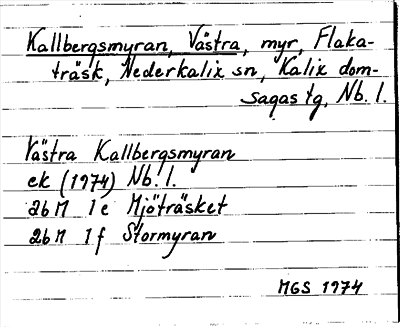 Kallbergsmyran, Västra, myr, Flaka-
träsk, Nederkalix sn, Kalix dom-
sagas tg, Nb. l.
Västra Kallbergsmyran
ek (1974) Nb. l.
26M 1e Mjöträsket
26M 1f Stormyran
MGS 1974